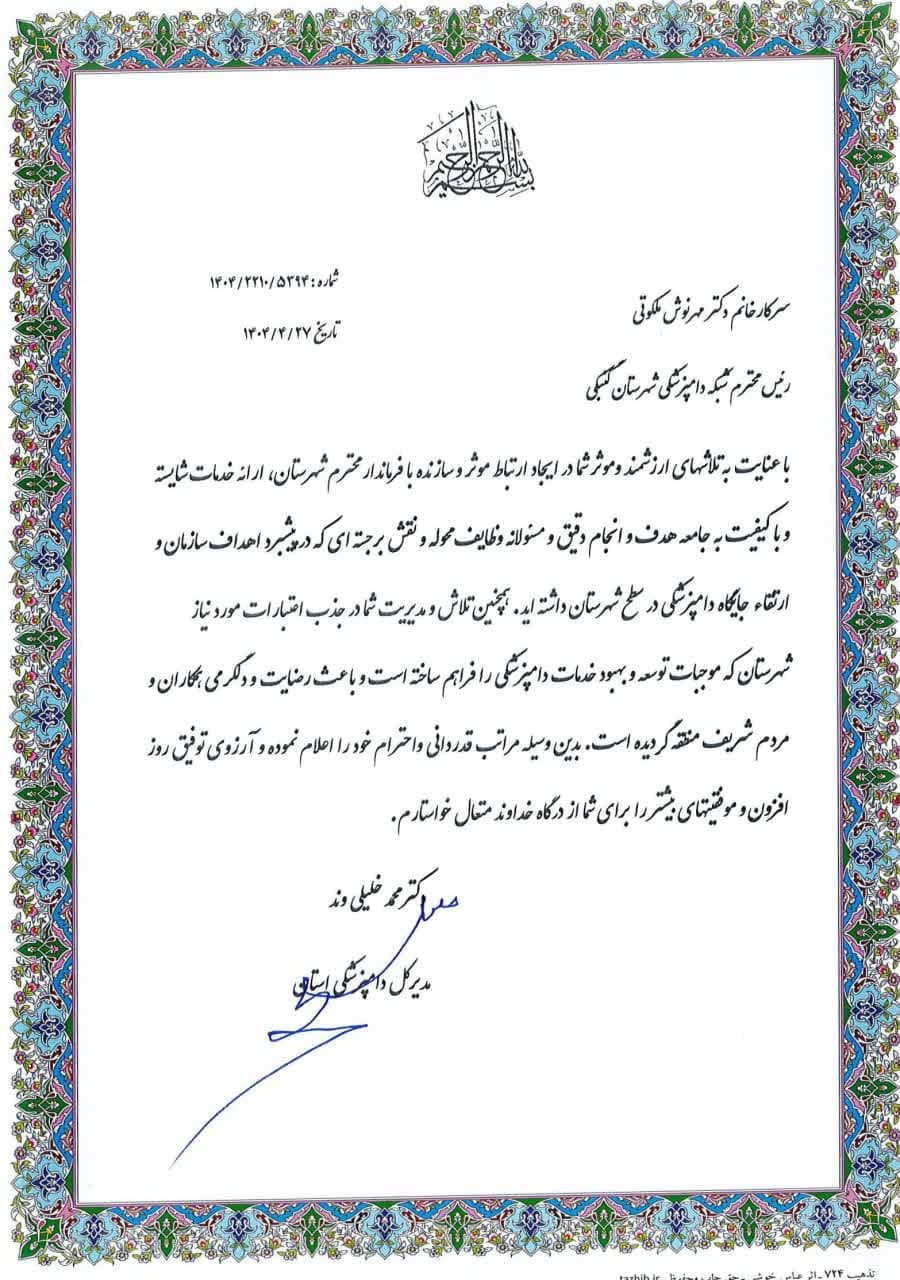 بسم الله الرحمن الرحیم
شماره: ۱۴۰۴/۲۲۱۰/۵۳۹۴
تاریخ ۱۴۰۴/۴/۲۷
سرکار خانم دکتر مهرنوش ملکوتی
رئیس محترم شبکه دامپزشکی شهرستان گتبکی
با عنایت به تلاشهای ارزشمند وموثر شما در ایجاد ارتباط موثر و سازنده با فرماندار محترم شهرستان، ارائه خدمات شایسته
و با کیفیت به جامعه هدف و انجام دقیق و مسئولانه وظایف محوله و نقش برجسته ای که در پیشبرد اهداف سازمان و
ارتقاء جایگاه دامپزشکی در سطح شهرستان داشته اید. همچنین تلاش و مدیریت شما در جذب اعتبارات مورد نیاز
شهرستان که موجبات توسعه و بهبود خدمات دامپزشکی را فراهم ساخته است و باعث رضایت و دلگرمی همکاران و
مردم شریف منطقه گردیده است. بدین وسیله مراتب قدردانی واحترام خود را اعلام نموده و آرزوی توفیق روز
افزون و موفقیتهای بیشتر را برای شما از درگاه خداوند متعال خواستارم.
دکتر محمد خلیلی وند
مدیرکل دامپزشکی استان
تذهیب ۷۲۴ - اثر عباس خوشی - حق چاپ محفوظ tazhib.ir